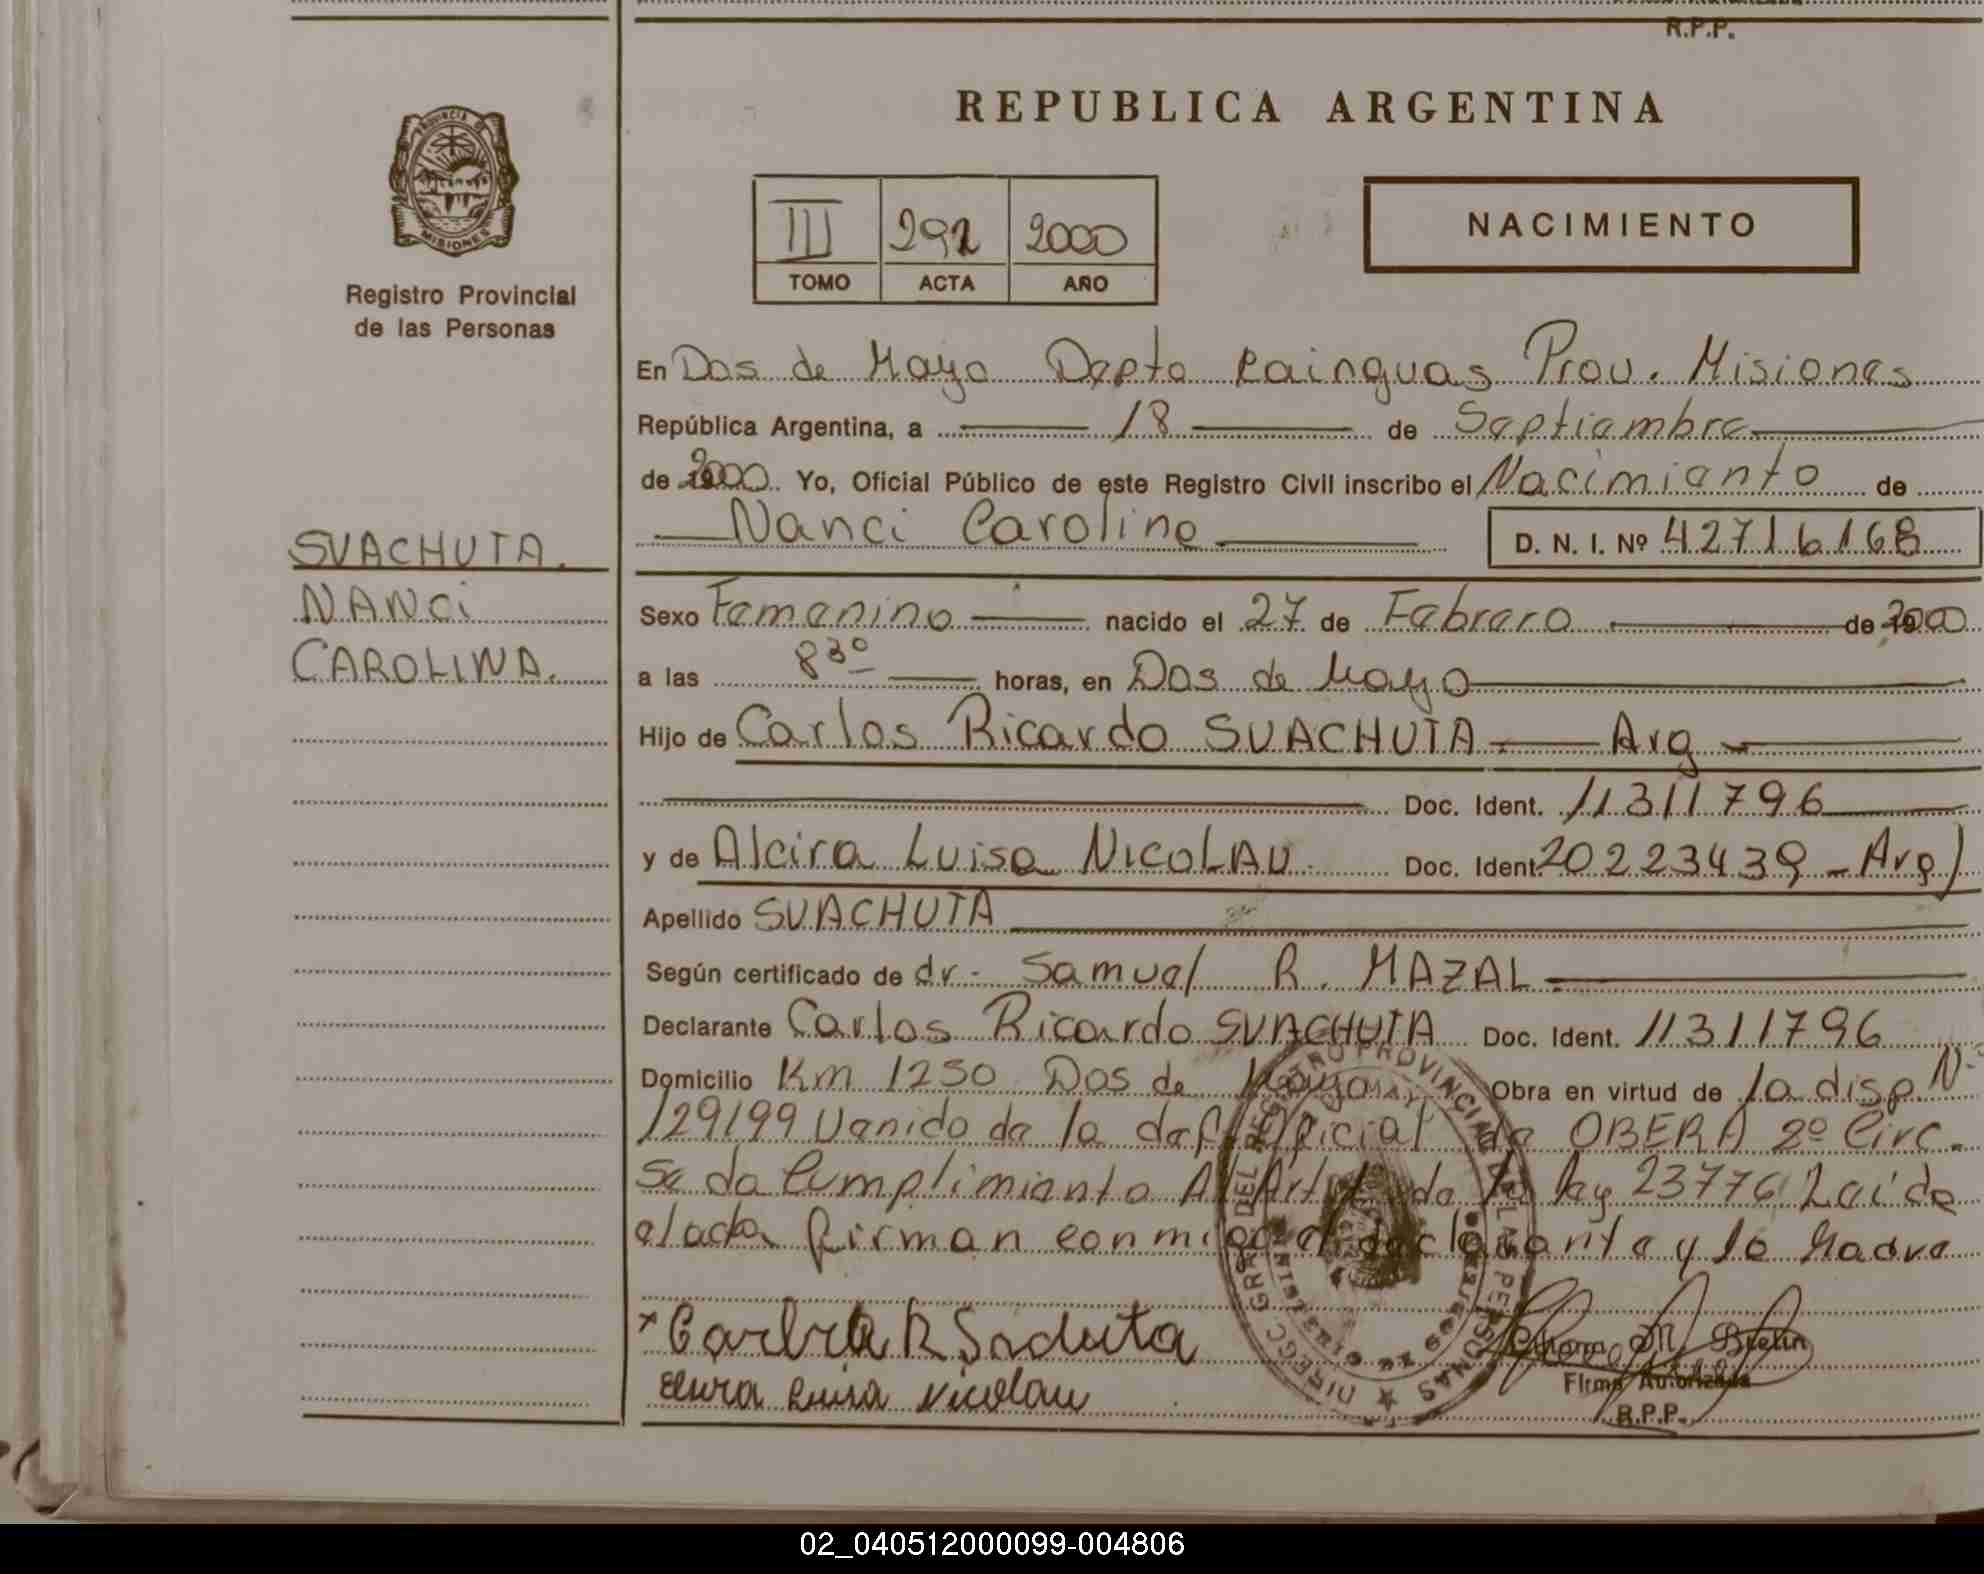 R.P.P.
REPUBLICA ARGENTINA
PROVINCIA DE
MISIONES
Registro Provincial
de las Personas
III 292 2000
TOMO ACTA AÑO
NACIMIENTO
En Dos de Mayo Depto Cainguas Prov. Misiones
República Argentina, a 18 de Septiembre
de 2000. Yo, Oficial Público de este Registro Civil inscribo el Nacimiento de
Nanci Carolina D. N. I. Nº 42716168
SVACHUTA.
NANCi
CAROLINA.
Sexo Femenino nacido el 27 de Febrero de 2000
a las 8 30 horas, en Dos de Mayo
Hijo de Carlos Ricardo SVACHUTA - Arg -
Doc. Ident. 11311796
y de Alcira Luisa NICOLAU. Doc. Ident 20223439 - Arg)
Apellido SVACHUTA
Según certificado de dr. Samuel R. MAZAL
Declarante Carlos Ricardo SVACHUTA Doc. Ident. 11311796
Domicilio Km 1250 Dos de Mayo Obra en virtud de la disp. Nº
129/99 Venido de la def. Oficial de OBERA 2º Circ.
Se da Cumplimiento Al Art de la ley 23776 Leída
el acta firman conmigo el declarante y la Madre
DIRECC. GRAL. DEL REGISTRO PROVINCIAL DE LAS PERSONAS
Carlos R Svachuta
Luisa Nicolau
M. Brelin
Firma Autorizada
R.P.P.
02_040512000099-004806